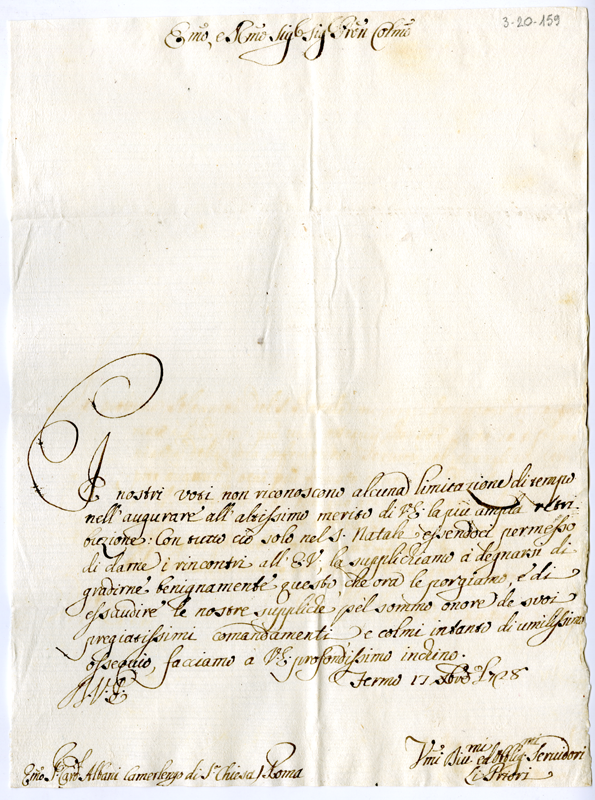 3-20-159
Emo, e Rmo Sigr Sig Pron Colmo
I nostri voti non riconoscono alcuna limitazione di tempo
nell'augurare all'altissimo merito di V.E. la più ampla retri-
buzione: Con tutto ciò solo nel S. Natale essendoci permesso
di darne i rincontri all'E.V., la supplichiamo à degnarsi di
gradirne benignamente questo, che ora le porgiamo, e di
essaudire le nostre suppliche pel sommo onore de suoi
pregiatissimi comandamenti e colmi intanto di umilissimo
ossequio, facciamo a V.E. profondissimo inchino.
Fermo 17 Xbre 1728
D. V. E.
Umi Divmi ed Obligmi Servidori
Li Priori
Emo Sr Card Albani Camerlengo di Sa Chiesa / Roma